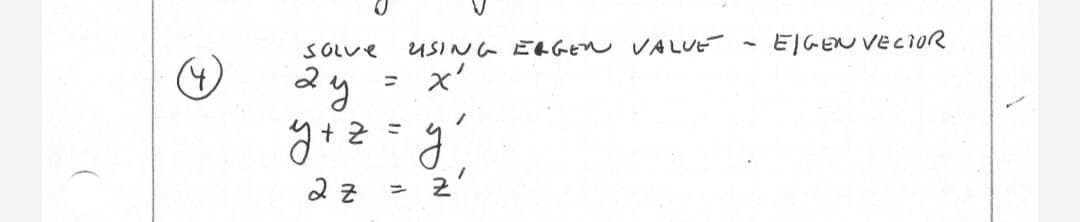 ④ SOLVE USING EIGEN VALUE - EIGENVECTOR
2y = x'
y+z = y'
2z = z'